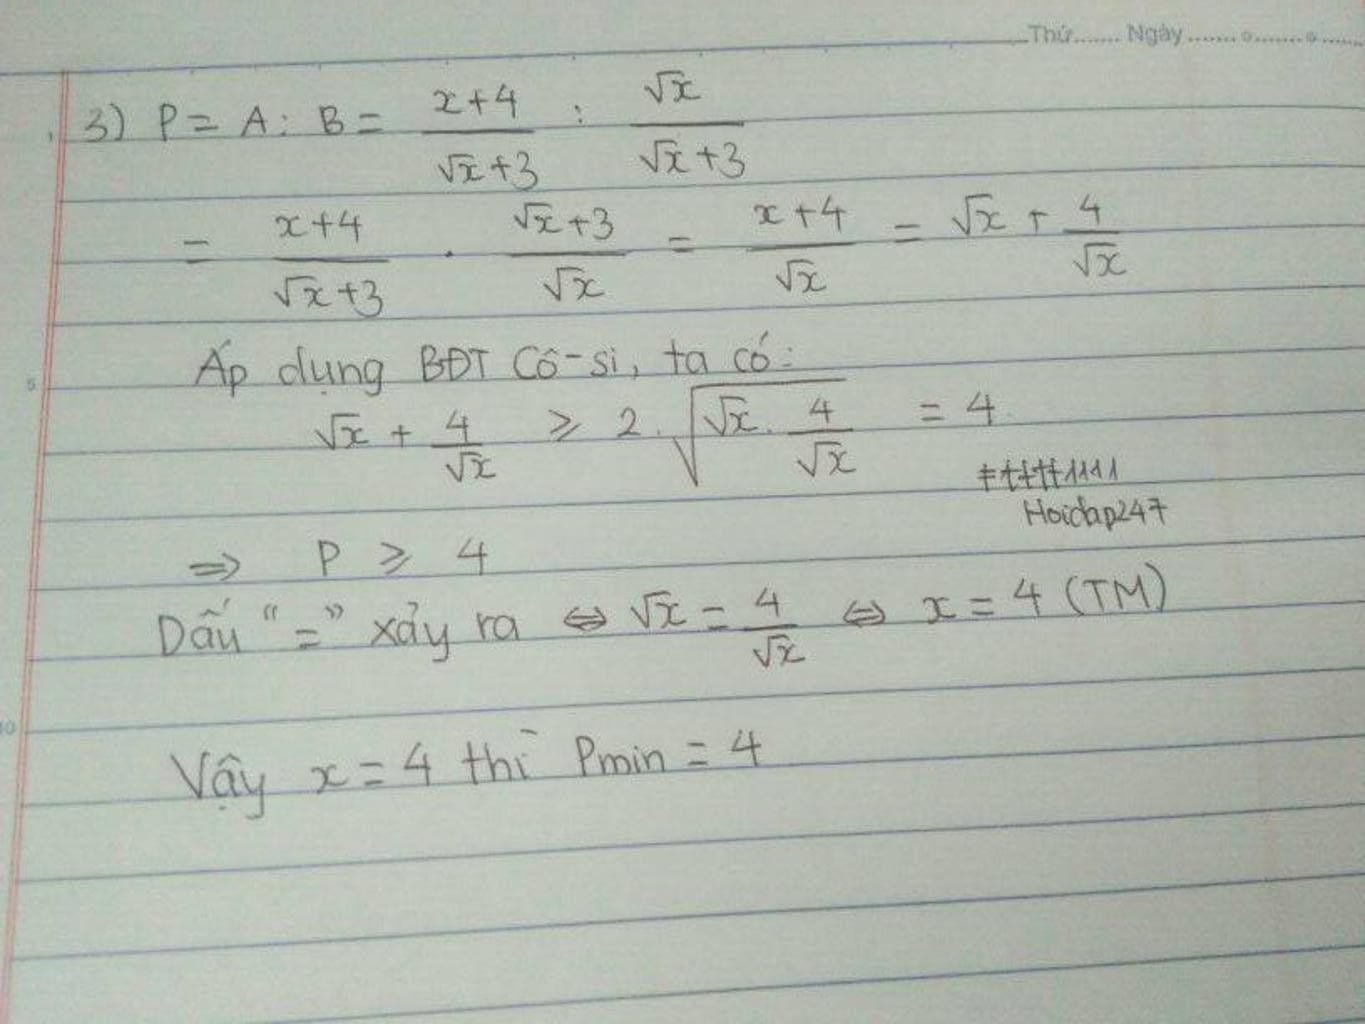 Thứ....... Ngày ....... o ....... o ......
3) P = A : B = \frac{x+4}{\sqrt{x}+3} : \frac{\sqrt{x}}{\sqrt{x}+3}
= \frac{x+4}{\sqrt{x}+3} . \frac{\sqrt{x}+3}{\sqrt{x}} = \frac{x+4}{\sqrt{x}} = \sqrt{x} + \frac{4}{\sqrt{x}}
Áp dụng BĐT Cô-si, ta có:
5
\sqrt{x} + \frac{4}{\sqrt{x}} ≥ 2.\sqrt{\sqrt{x}.\frac{4}{\sqrt{x}}} = 4
Hoidap247
⇒ P ≥ 4
Dấu "=" xảy ra ⇔ \sqrt{x} = \frac{4}{\sqrt{x}} ⇔ x = 4 (TM)
10
Vậy x = 4 thì Pmin = 4